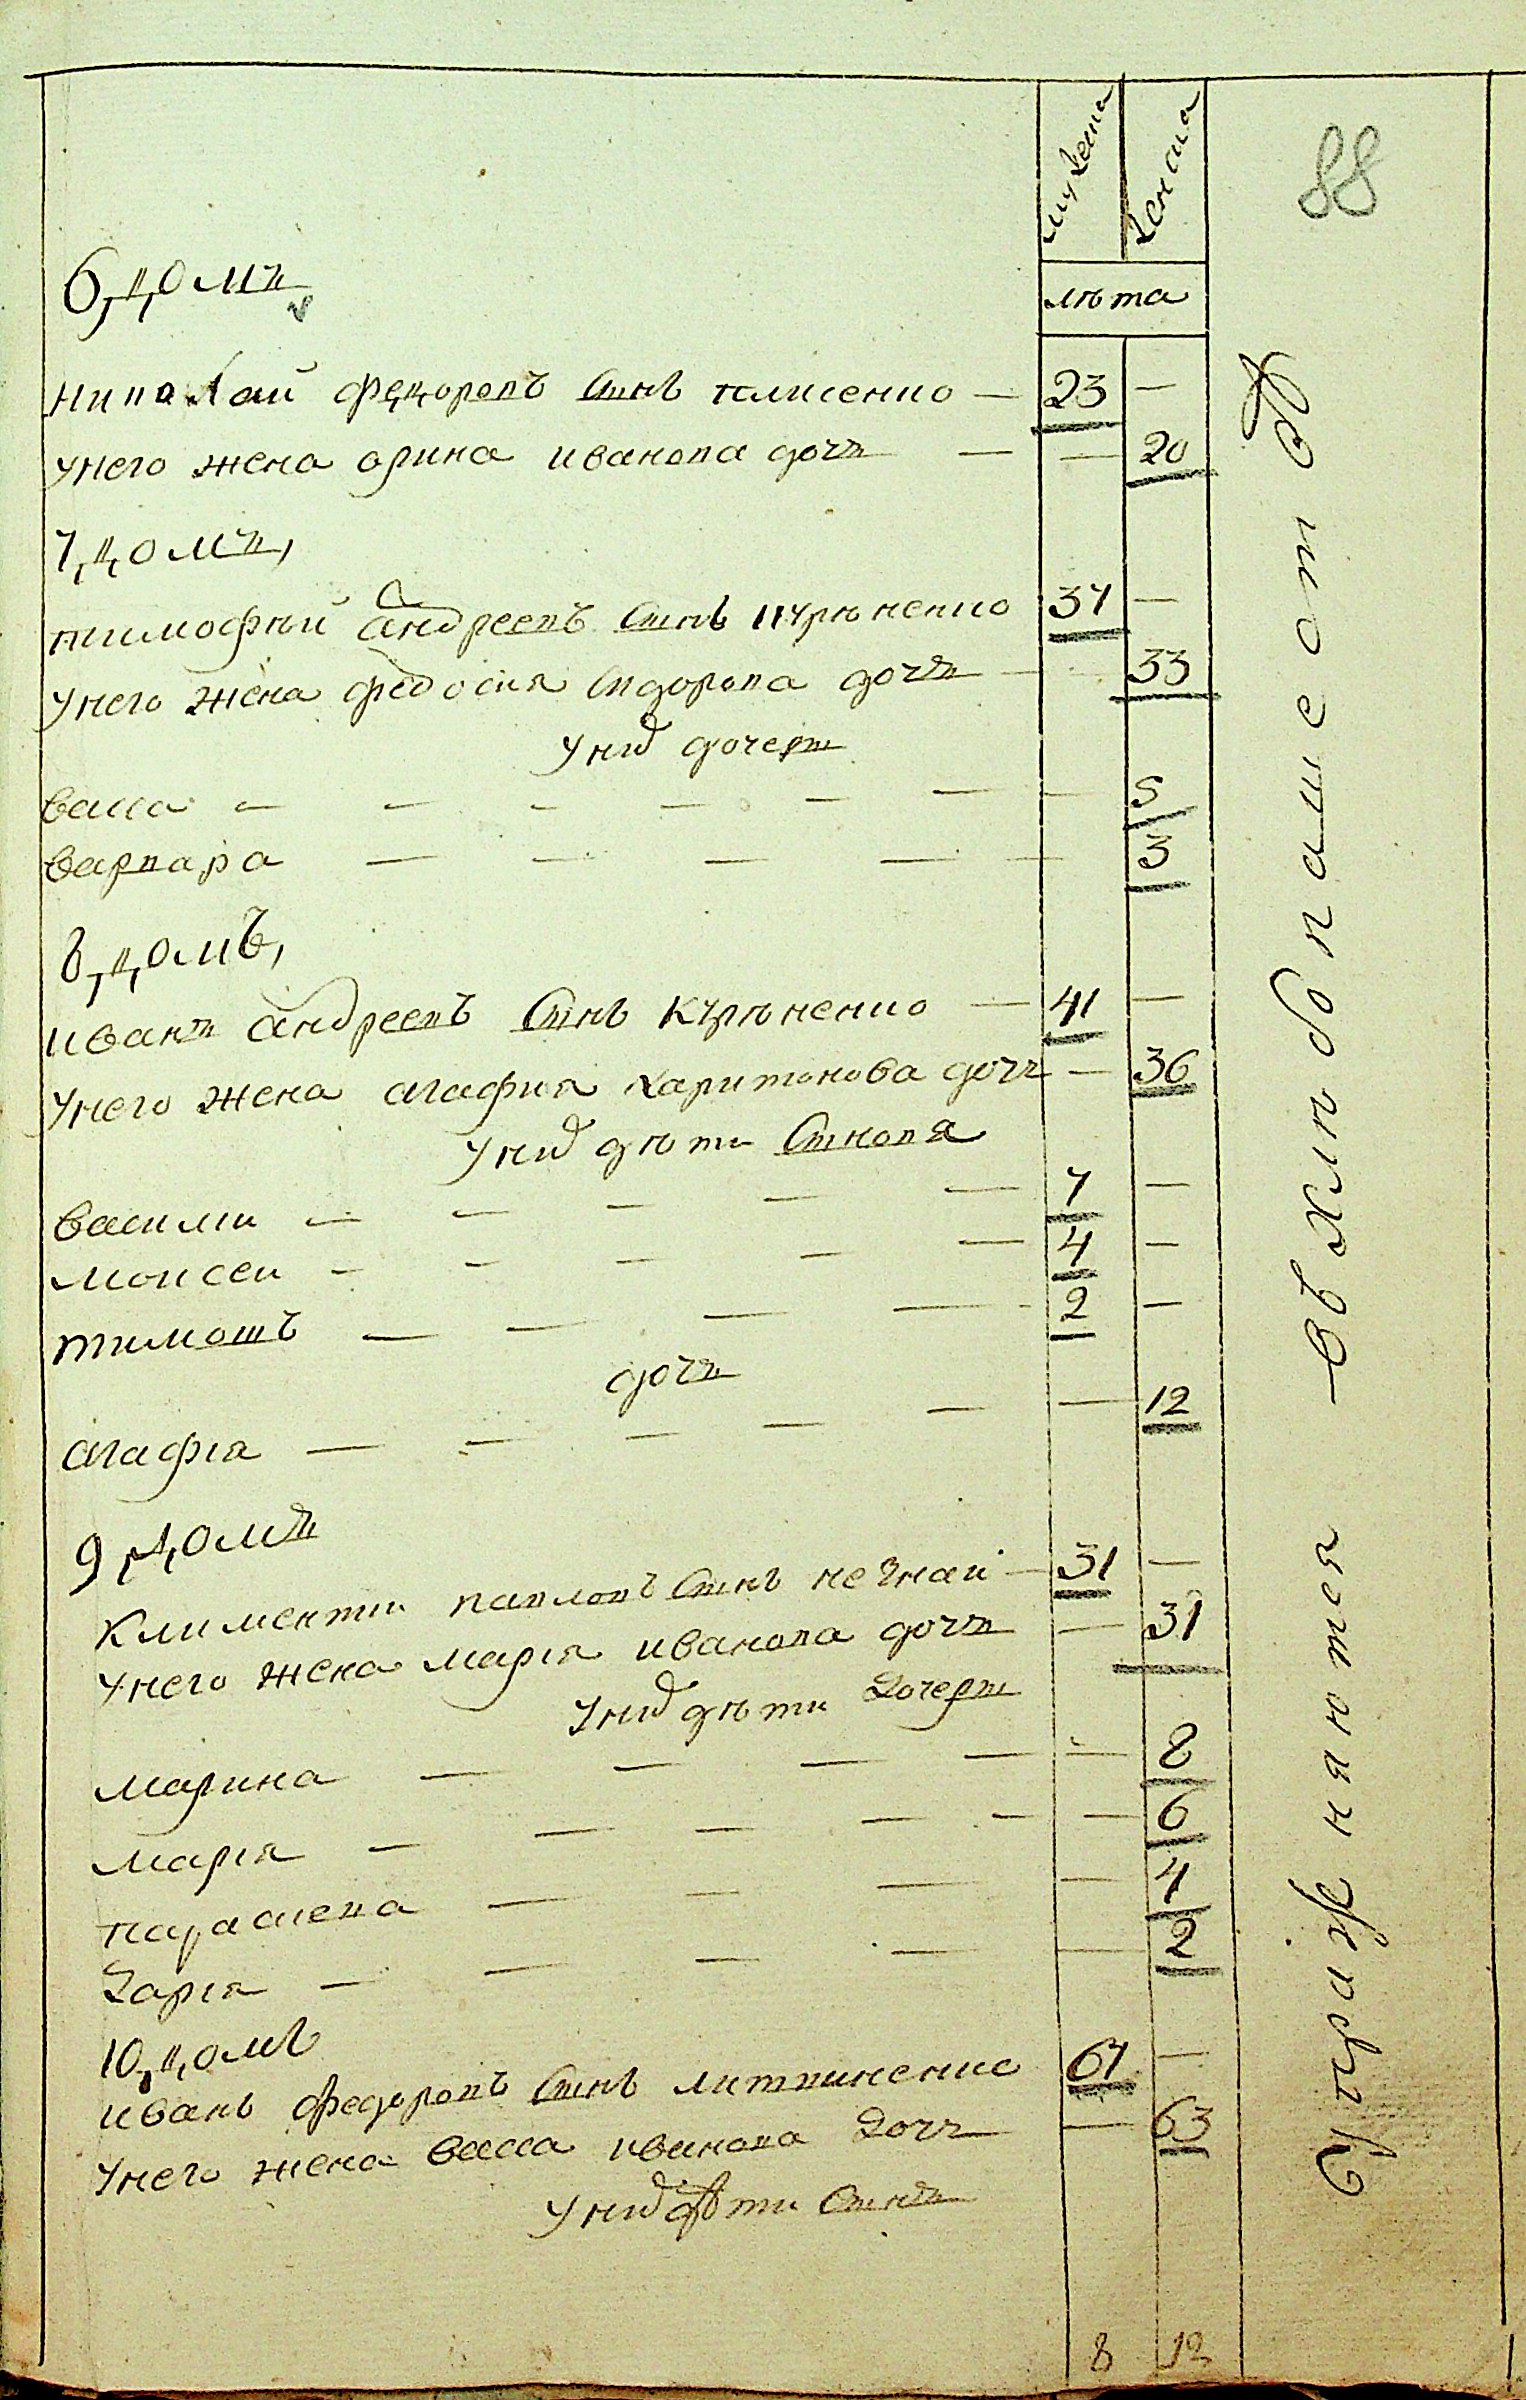 мужеска
женска
88
лѣта
6, домъ
николай федоровъ сынъ
23 —
у него жена орина иванова дочь — — 20
7, домъ,
тимофѣй андреевъ сынъ курѣненко 37 —
у него жена федосия сидорова дочь — — 33
у них дочери
васса — — — — — — — 5
варвара — — — — — 3
8, домъ,
иванъ андреевъ сынъ курѣненко — 41 —
у него жена агафия харитонова дочь — 36
у них дѣти сыновя
васили — — — — — 7 —
моисеи — — — — — 4 —
тимошъ — — — — 2 —
дочь
агафiя — — — — — — 12
9, домъ
климентии павловъ сынъ незнай — 31 —
у него жена марiя иванова дочь — 31
у них дѣти дочери
марина — — — — — 8
марiя — — — — — — 6
параскева — — — — 4
дарiя — — — — — 2
10, домъ
иванъ федоровъ сынъ литвиненко 67 —
у него жена васса иванова дочь — 63
у них дѣти сынъ
8 12
упражняются в хлѣбопашествѣ